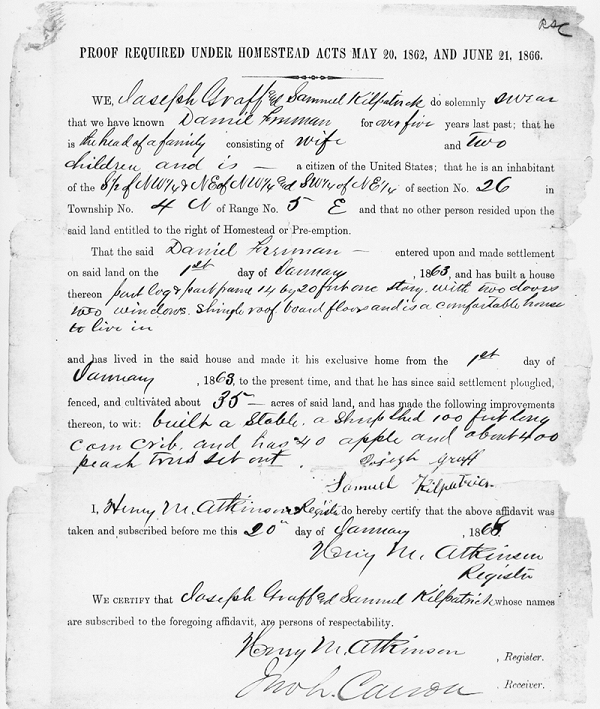 PROOF REQUIRED UNDER HOMESTEAD ACTS MAY 20, 1862, AND JUNE 21, 1866.
WE, Joseph Graff & Samuel Kilpatrick do solemnly swear
that we have known Daniel Freeman for over five years last past; that he
is the head of a family consisting of wife and two
children and is — a citizen of the United States; that he is an inhabitant
of the S½ of NW¼ & NE of NW¼ & SW¼ of NE¼ of section No. 26 in
Township No. 4 N of Range No. 5 E and that no other person resided upon the
said land entitled to the right of Homestead or Pre-emption.
That the said Daniel Freeman — entered upon and made settlement
on said land on the 1st day of January, 1863, and has built a house
thereon part log & part frame 14 by 20 feet one story. with two doors
two windows. shingle roof. board floors and is a comfortable house
to live in
and has lived in the said house and made it his exclusive home from the 1st day of
January, 1863, to the present time, and that he has since said settlement ploughed,
fenced, and cultivated about 35 — acres of said land, and has made the following improvements
thereon, to wit: built a Stable. a Sheep Shed 100 feet long
Corn Crib. and has 40 apple and about 400
peach trees set out.
Joseph Graff
Samuel Kilpatrick
I, Henry M. Atkinson Register do hereby certify that the above affidavit was
taken and subscribed before me this 20" day of January, 1868.
Henry M. Atkinson
Register
WE CERTIFY that Joseph Graff & Samuel Kilpatrick whose names
are subscribed to the foregoing affidavit, are persons of respectability.
Henry M. Atkinson, Register.
Jno L. Carson, Receiver.